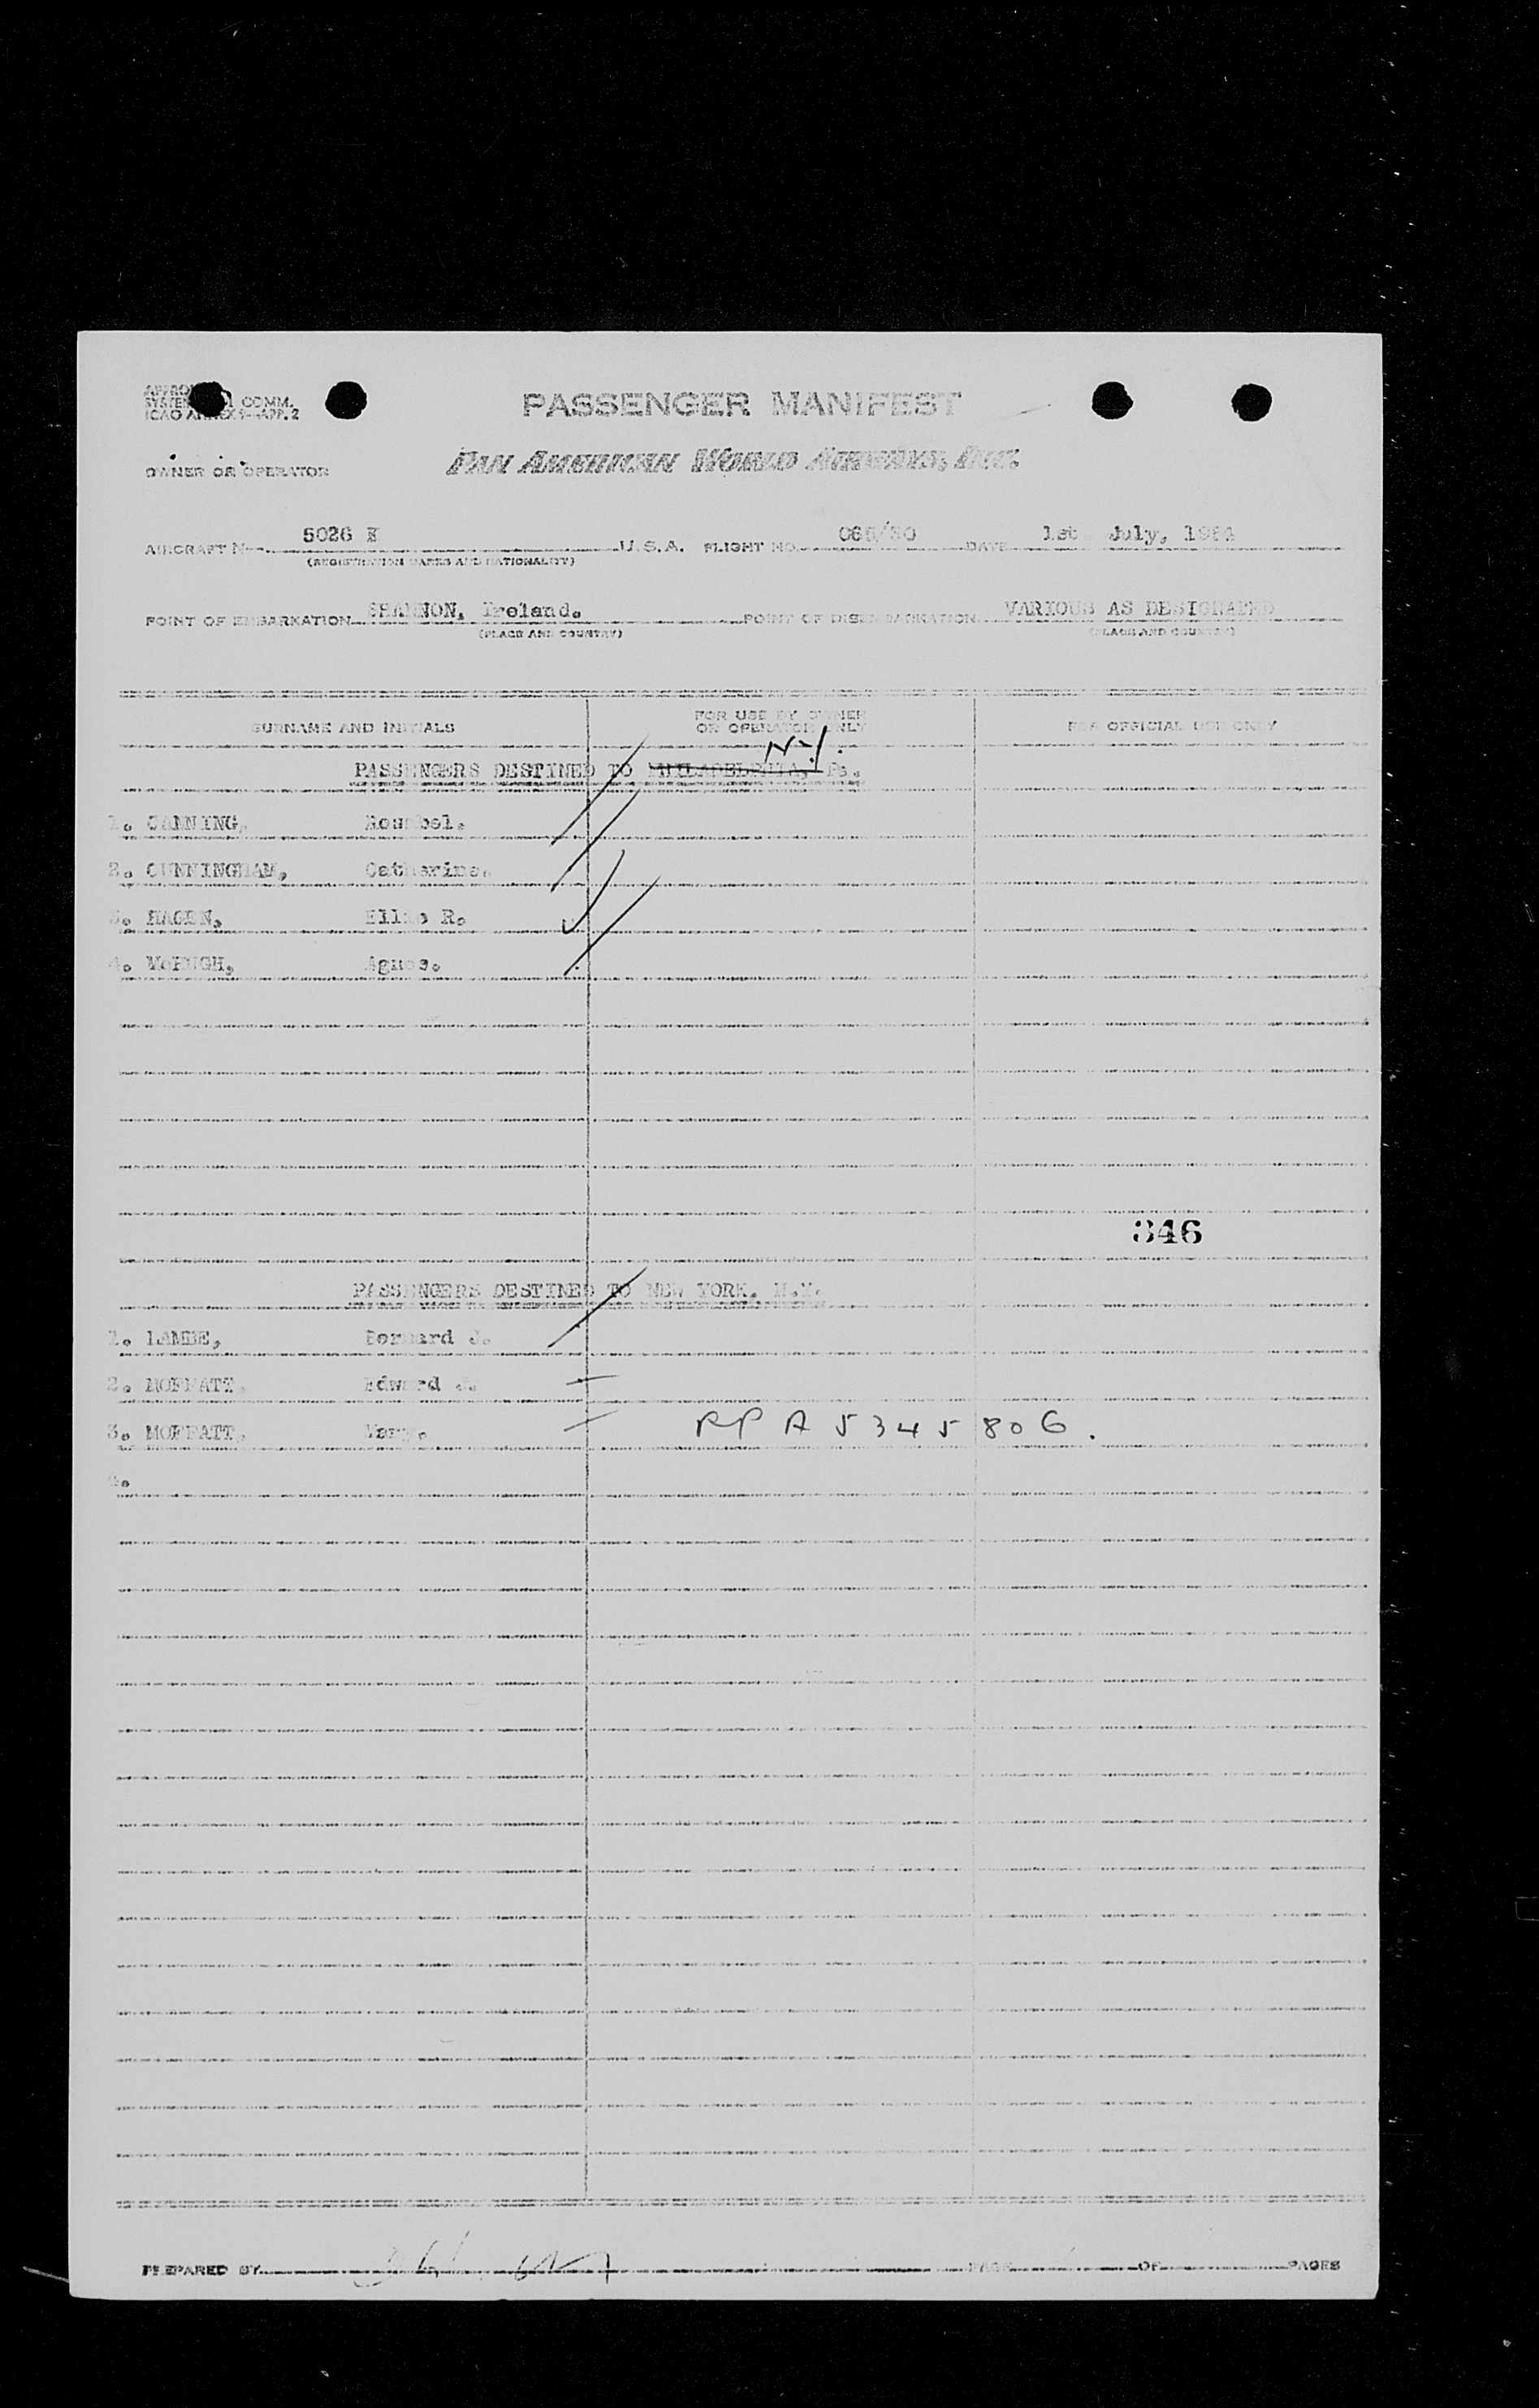 COMM.
ICAO ANNEX 9—APP. 2
PASSENGER MANIFEST
OWNER OR OPERATOR
PAN AMERICAN WORLD AIRWAYS, INC.
AIRCRAFT N 5026 K U.S.A. FLIGHT NO. DATE 1st July,
(REGISTRATION MARKS AND NATIONALITY)
POINT OF EMBARKATION SHANNON, Ireland. POINT OF DISEMBARKATION VARIOUS AS DESIGNATED
(PLACE AND COUNTRY) (PLACE AND COUNTRY)
SURNAME AND INITIALS FOR USE BY OWNER OR OPERATOR ONLY FOR OFFICIAL USE ONLY
N.Y.
PASSENGERS DESTINED TO PHILADELPHIA, Pa.
1. CANNING,
2. CUNNINGHAM, Catherine.
3. HAGEN, R.
4. McHUGH, Agnes.
346
PASSENGERS DESTINED TO NEW YORK. N.Y.
1. LAMBE, Bernard J.
2. MOFFATT, Edward J.
3. MOFFATT, Mary. RP A 5345806.
4.
PREPARED BY PAGE OF PAGES